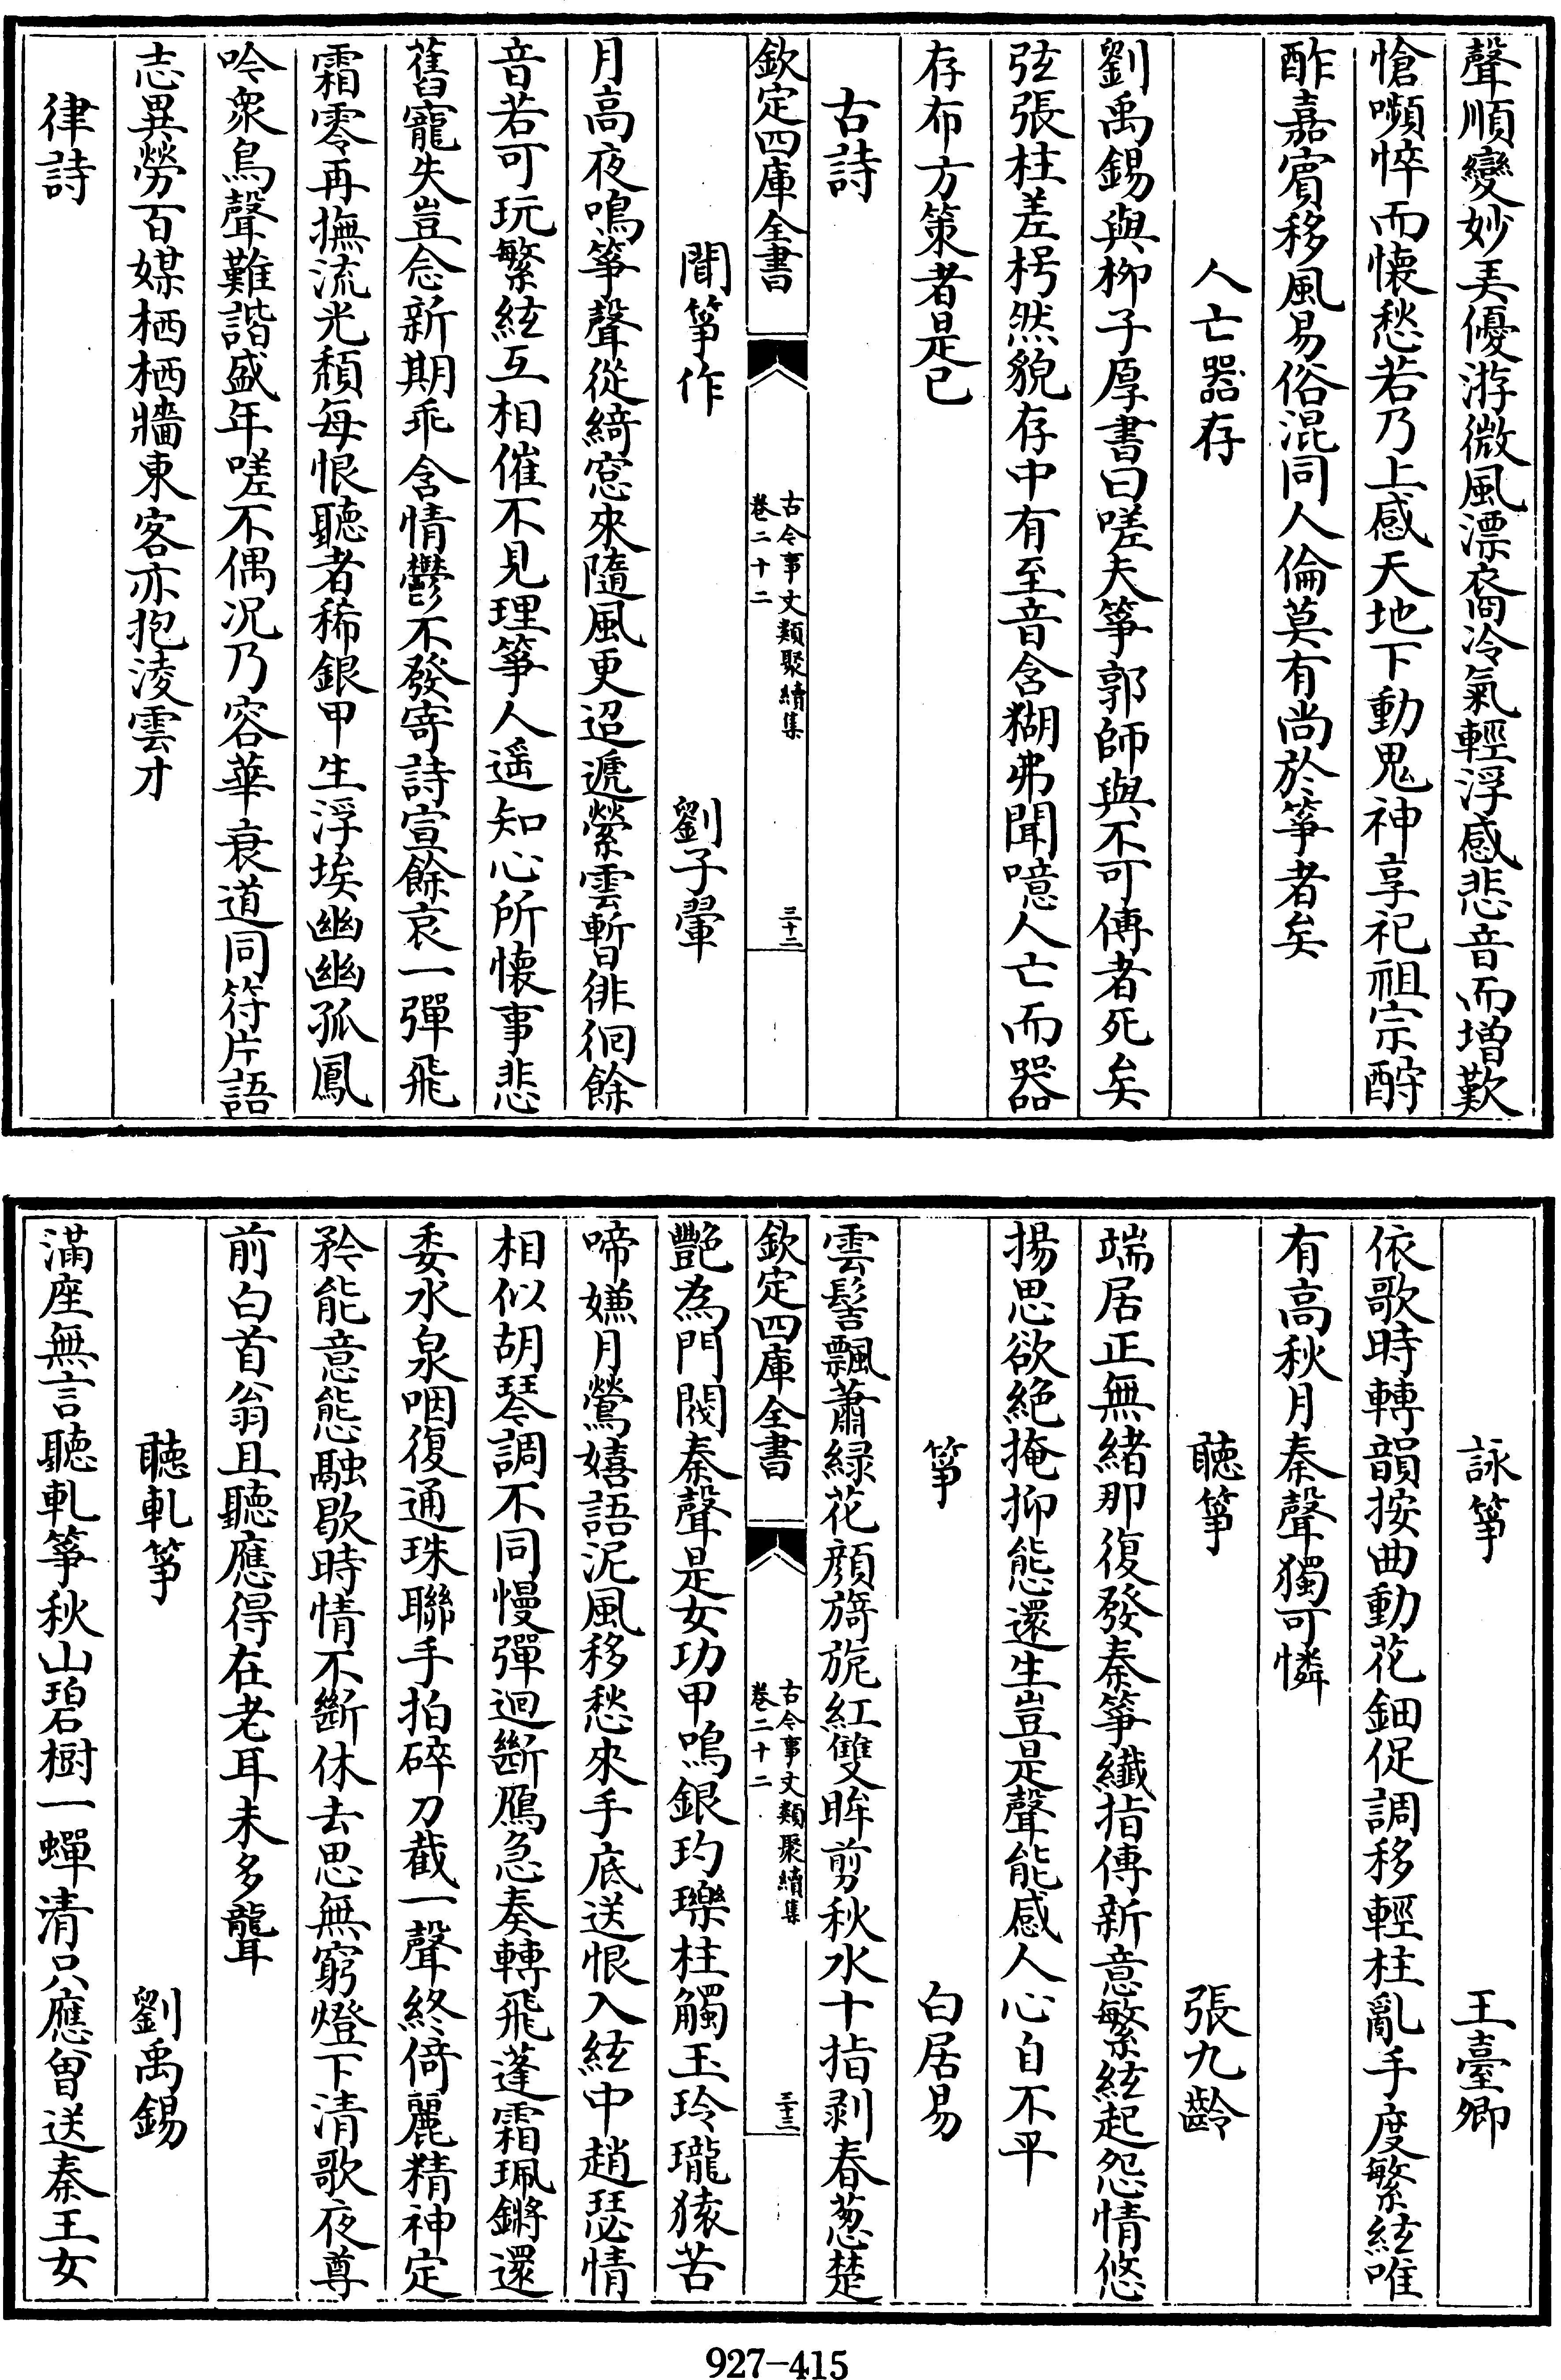 聲順變妙弄優游微風漂裔冷氣輕浮感悲音而增歎
愴嚬悴而懷愁若乃上感天地下動鬼神享祀祖宗酧
酢嘉賓移風易俗混同人倫莫有尚於箏者矣
人亡器存
劉禹錫與柳子厚書曰嗟夫箏郭師與不可傳者死矣
弦張柱差枵然貌存中有至音含糊弗聞噫人亡而器
存布方策者是已
古詩
欽定四庫全書
古今事文類聚續集
卷二十二
三十二
聞箏作 劉子翬
月高夜鳴箏聲從綺窓來隨風更迢遞縈雲暫徘徊餘
音若可玩繁絃互相催不見理箏人遥知心所懷事悲
舊寵失豈念新期乖含情鬱不發寄詩宣餘哀一彈飛
霜零再撫流光頽每恨聽者稀銀甲生浮埃幽幽孤鳳
吟衆鳥聲難諧盛年嗟不偶况乃容華衰道同符片語
志異勞百媒栖栖牆東客亦抱淩雲才
律詩
詠箏 王臺卿
依歌時轉韻按曲動花鈿促調移輕柱亂手度繁絃唯
有高秋月秦聲獨可憐
聽箏 張九齡
端居正無緒那復發秦箏纖指傳新意繁絃起怨情悠
揚思欲絶掩抑態還生豈是聲能感人心自不平
箏 白居易
雲髻飄蕭緑花顔旖旎紅雙眸剪秋水十指剥春葱楚
欽定四庫全書
古今事文類聚續集
卷二十二
三十三
艷為門閥秦聲是女功甲鳴銀玓瓅柱觸玉玲瓏猿苦
啼嫌月鶯嬉語泥風移愁來手底送恨入絃中趙瑟情
相似胡琴調不同慢彈迴斷鴈急奏轉飛蓬霜珮鏘還
委水泉咽復通珠聯手拍碎刀截一聲終倚麗精神定
矜能意態融歇時情不斷休去思無窮燈下清歌夜尊
前白首翁且聽應得在老耳未多聾
聽軋箏 劉禹錫
滿座無言聽軋箏秋山碧樹一蟬清只應曾送秦王女
927-415